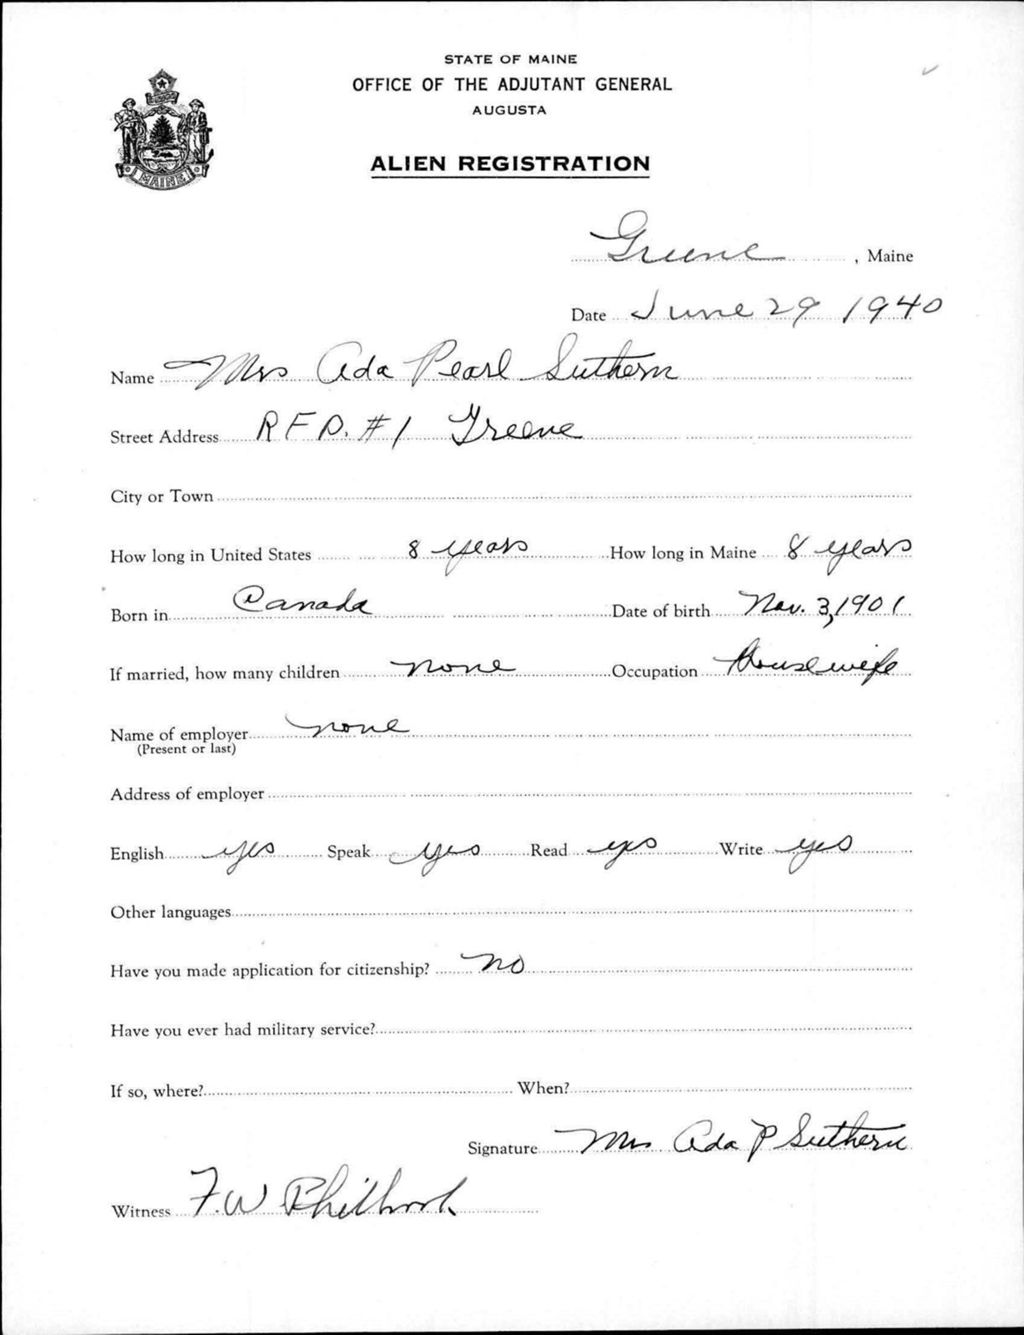 STATE OF MAINE
OFFICE OF THE ADJUTANT GENERAL
AUGUSTA
ALIEN REGISTRATION
MAINE
Greene, Maine
Date June 29 1940
Name Mrs Ada Pearl Suthern
Street Address R F D. #1 Greene
City or Town
How long in United States 8 years How long in Maine 8 years
Born in Canada Date of birth Nov. 3, 1901
If married, how many children none Occupation Housewife
Name of employer none
(Present or last)
Address of employer
English yes Speak yes Read yes Write yes
Other languages
Have you made application for citizenship? no
Have you ever had military service?
If so, where? When?
Signature Mrs Ada P Suthern
Witness F. W Philbrook